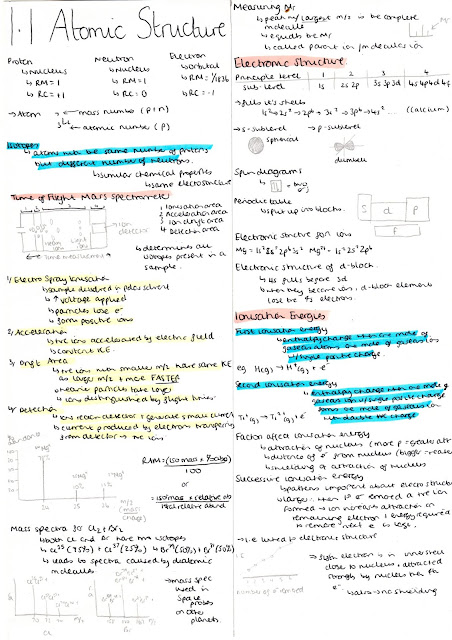 1.1 Atomic Structure
Proton
↳ Nucleus
↳ RM = 1
↳ RC = +1
Neutron
↳ Nucleus
↳ RM = 1
↳ RC = 0
Electron
↳ orbital
↳ RM = 1/1836
↳ RC = -1
→ Atom ↳ mass number (p+n)
↳ atomic number (p)
Isotopes
↳ atoms with the same number of protons
but different number of neutrons.
↳ similar chemical properties
↳ same electron
Time of Flight Mass Spectrometer
1 Ionisation area
2 Acceleration area
3 Ion drift area
4 Detection area
Ion detector
Time measurement
↳ determines all
isotopes present in a
sample.
1) Electro Spray Ionisation
↳ sample dissolved in polar solvent
↳ ↑ voltage applied
↳ particles lose e⁻
↳ form positive ions
2) Acceleration
↳ +ve ions accelerated by electric field
↳ constant KE.
3) Drift Area
↳ +ve ions with smaller m/z have same KE
as larger m/z + move FASTER
↳ heavier particles take longer
↳ ions distinguished by flight times.
4) Detection
↳ ions reach detector + generate small current
↳ current produced by electrons transferring
from detector → +ve ions
RAM = (iso mass x % abp)
100
or
= (iso mass x relative ab)
relative abund
m/z
(mass/
charge)
Mass spectra for Cl₂ + Br₂
↳ both Cl and Br have two isotopes
↳ Cl³⁵ (75%) + Cl³⁷ (25%) ↳ Br⁷⁹ (50%) + Br⁸¹ (50%)
↳ leads to spectra caused by diatomic
molecules.
→ mass spec
used in
space
probes
on other
planets.
Cl
Br
Measuring Mr
↳ peak w/ largest m/z is the complete
molecule
↳ equals the Mr
↳ called parent ion/molecular ion
Electronic Structure
Principle level 1 2 3 4
sub-level 1s 2s 2p 3s 3p 3d 4s 4p 4d 4f
→ fills it's shells
1s² → 2s² → 2p⁶ → 3s² → 3p⁶ → 4s² ... (calcium)
→ s-sublevel → p-sublevel
spherical
dumbell
Spin diagrams
Periodic table
↳ split up into blocks.
S d P
F
Electronic structure for ions
Mg = 1s² 2s² 2p⁶ 3s² Mg²⁺ = 1s² 2s² 2p⁶
Electronic structure of d-block.
↳ 4s fills before 3d
↳ when they become ions, d-block elements
lose the 4s electrons.
Ionisation Energies
First ionisation energy
↳ enthalpy change when one mole of
gaseous atoms one mole of gaseous ions
w/ single +ve charge.
eg. H(g) → H⁺(g) + e⁻
Second ionisation energy
↳ enthalpy change when one mole of
gaseous ions w/ single +ve charge
form one mole of gaseous ion
with double +ve charge
Ti⁺(g) → Ti²⁺(g) + e⁻
Factors affect ionisation energy
↳ attraction of nucleus (more p = greater attr
↳ distance of e⁻ from nucleus (bigger = less
↳ shielding of attraction of nucleus
Successive ionisation energy
↳ patterns important about electro structure
↳ larger. When 1st e⁻ removed a +ve ion
formed → ion increases attraction on
remaining electrons & energy required
to remove next e⁻ is larger.
→ i.e linked to electronic structure
number of e⁻ removed
→ 5th electron is in inner shell
close to nucleus, attracted
strongly by nucleus than 4th
e⁻
↳ also → no shielding